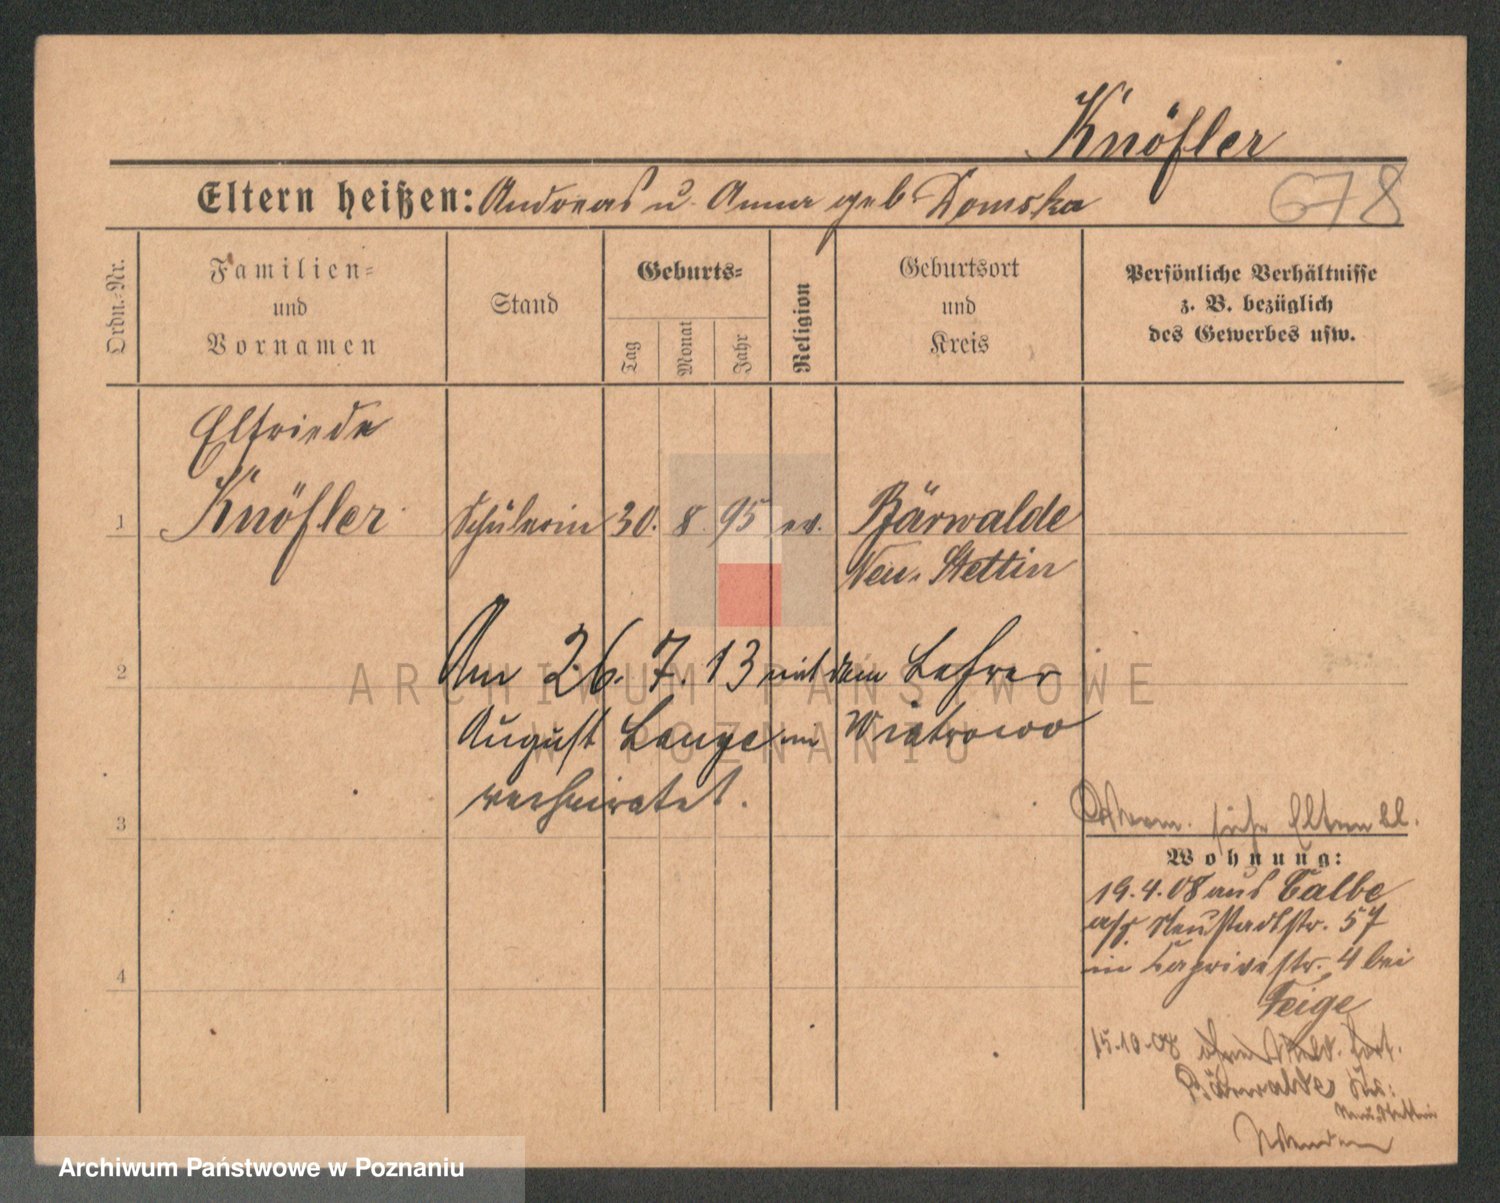 Knöfler
Eltern heißen: Andreas u. Anna geb. Domska
678
Ordn.-Nr.
Familien-
und
Vornamen
Stand
Geburts-
Tag
Monat
Jahr
Religion
Geburtsort
und
Kreis
Persönliche Verhältnisse
z. B. bezüglich
des Gewerbes usw.
Elfriede
1 Knöfler Schülerin 30. 8. 95 ev. Bärwalde
Neu. Stettin
2 Am 26. 7. 13 mit dem Lehrer
August Lange in Wiatrowo
verheiratet.
3
siehe Eltern bl.
Wohnung:
19.4.08 aus Calbe
Neustadtstr. 57
in Caprivistr. 4 bei
4
Feige
15.10.08 ohne Meld. fort.
Bärwalde Krs:
Neu Stettin
ARCHIWUM PAŃSTWOWE
W POZNANIU
Archiwum Państwowe w Poznaniu